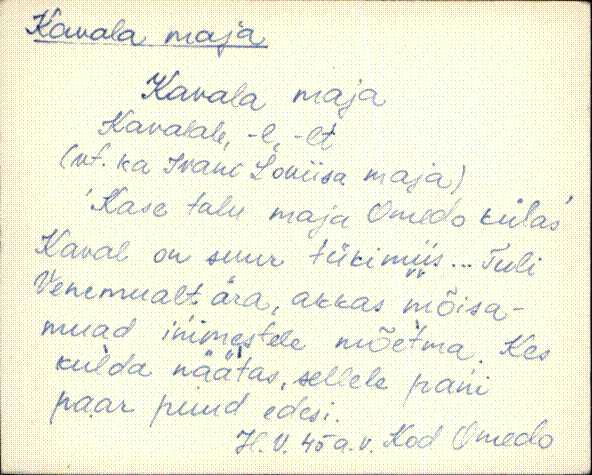 Kavala maja
Kavala maja
Kavalale, -l, -lt
(vt. ka Ivani Loviisa maja)
'Kase talu maja Omedo külas'
Kaval on suur tükimiis... Tuli
Venemualt ära, akkas mõisa-
muad inimestele mõetma. Kes
kulda näätas, sellele pani
paar puud edesi.
H. V. 45 a. v. Kod Omedo